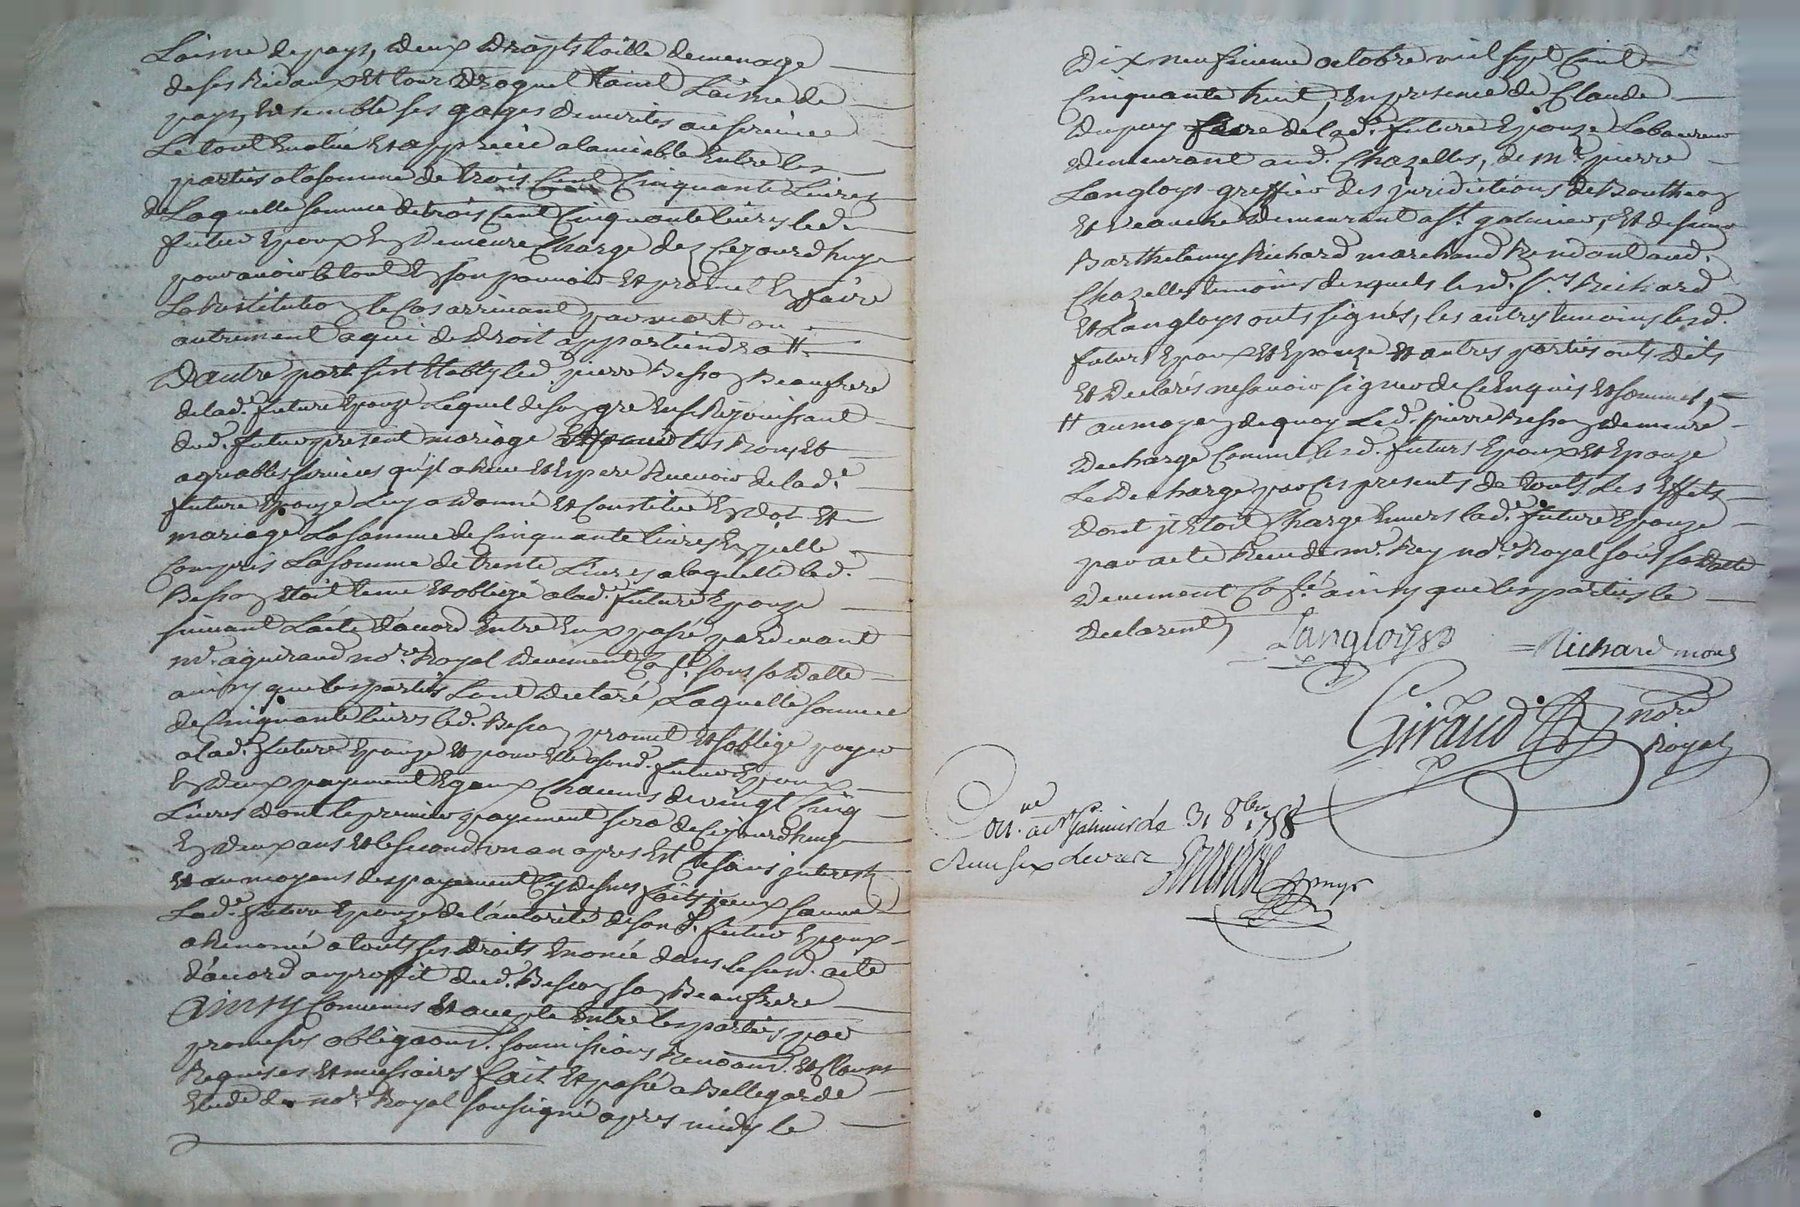 Laisne de pays, deux draps toille de menage
de ses Rideaux et tour droguet taint Laisne de
pays, Ensemble ses gages de merites au service
Le tout Evalué et apprecié alamiable Entre les
parties ala somme de trois Cent Cinquante Livres
de Laquelle somme de trois Cent Cinquante livres led.
futur Epoux En demeure Chargé dez Cejourdhuy
pour avoir le tout En son pouvoir et promet En faire
La Restitution le Cas arrivant par mort ou
autrement a qui de droit appartiendra #
D'autre part sest Etably led. pierre Besson Beaufrere
de lad. future Epouze Lequel de son gré En se Rejouissant
dud. futur present mariage et pour les bons et
agreables services qu'il a Receu et Espere Recevoir de lad.e
future Epouze Luy a donné et Constitué En dot et
mariage La somme de Cinquante livres En jcelle
Compris La somme de trente Livres a laquelle led.
Besson Etoit tenu et obligé a lad. future Epouze
suivant L'acte d'acord Entre Eux passé pardevant
m.e aguiraud no.re Royal deuement Con.lé sous sa datte
ainsy que les parties L'ont declaré Laquelle somme
de Cinquante livres led. Besson promet et soblige payer
a lad. future Epouze et pour Elle a sond. futur Epoux
En deux payement Egaux Chacuns de vingt Cinq
Livres dont le premier payement sera de Cejourdhuy
En deux ans et le second un an apres Et Ce sans jnterest
Et au moyens des payement Cy dessus faits jceux sauve
Lad.e future Epouze de l'autorité de sond. futur Epoux
a Renoncé a touts ses droits Enoncé dans le susd. acte
d'acord au proffit dud. Besson son Beaufrere
Ainsy Convenus et accepté Entre les parties par
promesses obligaons. soumissions Renoaons. et Clauses
Requises et necessaires fait et passé a Bellegarde
Etude du no.re Royal soussigné apres midy le
Dix neufvieme octobre mil sept Cent
Cinquante huit, En presence de Claude
Dupuy frere de lad.e future Epouze Laboureur
demeurant aud. Chazelles, de m.e pierre
Langloys greffier des juridictions de Boutheon
et Veauche demeurant a St. galmier, et de sieur
Barthelemy Richard marchand Residant aud.
Chazelles temoins desquels lesd. srs Richard
et Langloys onts signés, les autres temoins lesd.
futurs Epoux et Epouze et autres parties onts dits
et declarés ne sçavoir signer de Ce Enquis et sommés,
# au moyen de quoy Led. pierre Besson demeure
decharge Comme lesd. futurs Epoux et Epouze
Le decharge par Ces presentes de touts Les Effets
dont jl Etoit Chargé Envers lad.e future Epouze
par acte Receu de m.e Rey no.re Royal sous sa datte
deuement Con.lé ainsy que les parties le
declarent
Langloys
Richard
Giraud nore
Royal
Con.lé a St Galmier le 31 8bre 1758
Receu six Livres